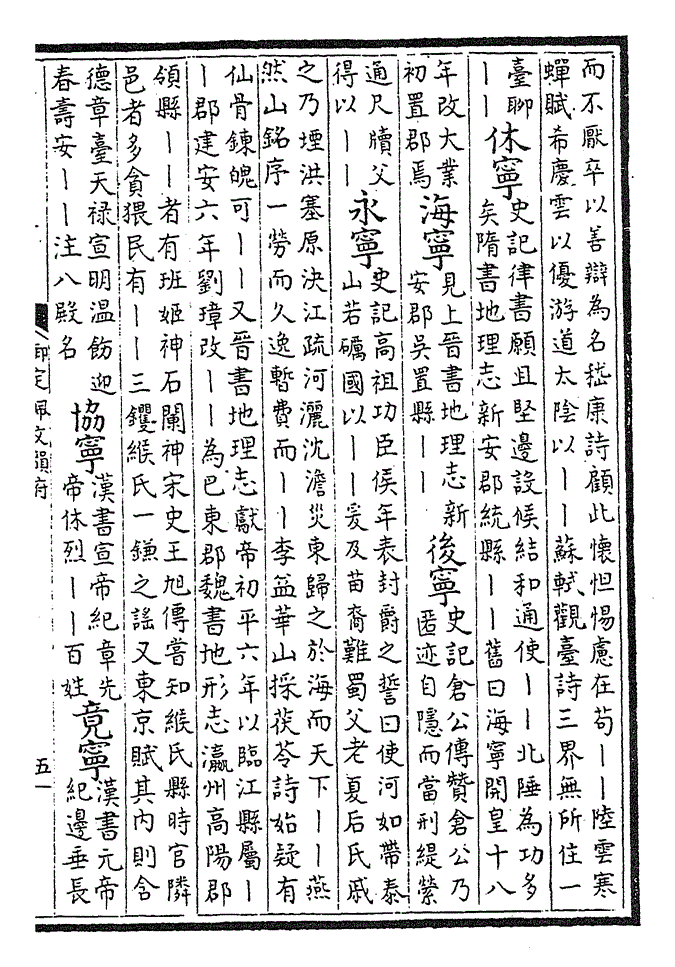 而不厭卒以善辯為名嵇康詩顧此懷怛惕慮在苟丨丨陸雲寒
蟬賦希慶雲以優游道太陰以丨丨蘇軾觀臺詩三界無所住一
臺聊
丨丨
休寧
史記律書願且堅邊設候結和通使丨丨北陲為功多
矣隋書地理志新安郡統縣丨丨舊曰海寧開皇十八
年改大業
初置郡焉
海寧
見上晉書地理志新
安郡吳置縣丨丨
後寧
史記倉公傳贊倉公乃
匿迹自隱而當刑緹縈
通尺牘父
得以丨丨
永寧
史記高祖功臣侯年表封爵之誓曰使河如帶泰
山若礪國以丨丨爰及苗裔難蜀父老夏后氏戚
之乃堙洪塞原決江疏河灑沈澹災東歸之於海而天下丨丨燕
然山銘序一勞而久逸暫費而丨丨李益華山採茯苓詩始疑有
仙骨鍊魄可丨丨又晉書地理志獻帝初平六年以臨江縣屬丨
丨郡建安六年劉璋改丨丨為巴東郡魏書地形志瀛州高陽郡
領縣丨丨者有班姬神石闌神宋史王旭傳嘗知緱氏縣時官隣
邑者多貪猥民有丨丨三钁緱氏一鎌之謡又東京賦其内則含
德章臺天禄宣明温飭迎
春壽安丨丨注八殿名
協寧
漢書宣帝紀章先
帝休烈丨丨百姓
竟寧
漢書元帝
紀邊垂長
御定佩文韻府
五一